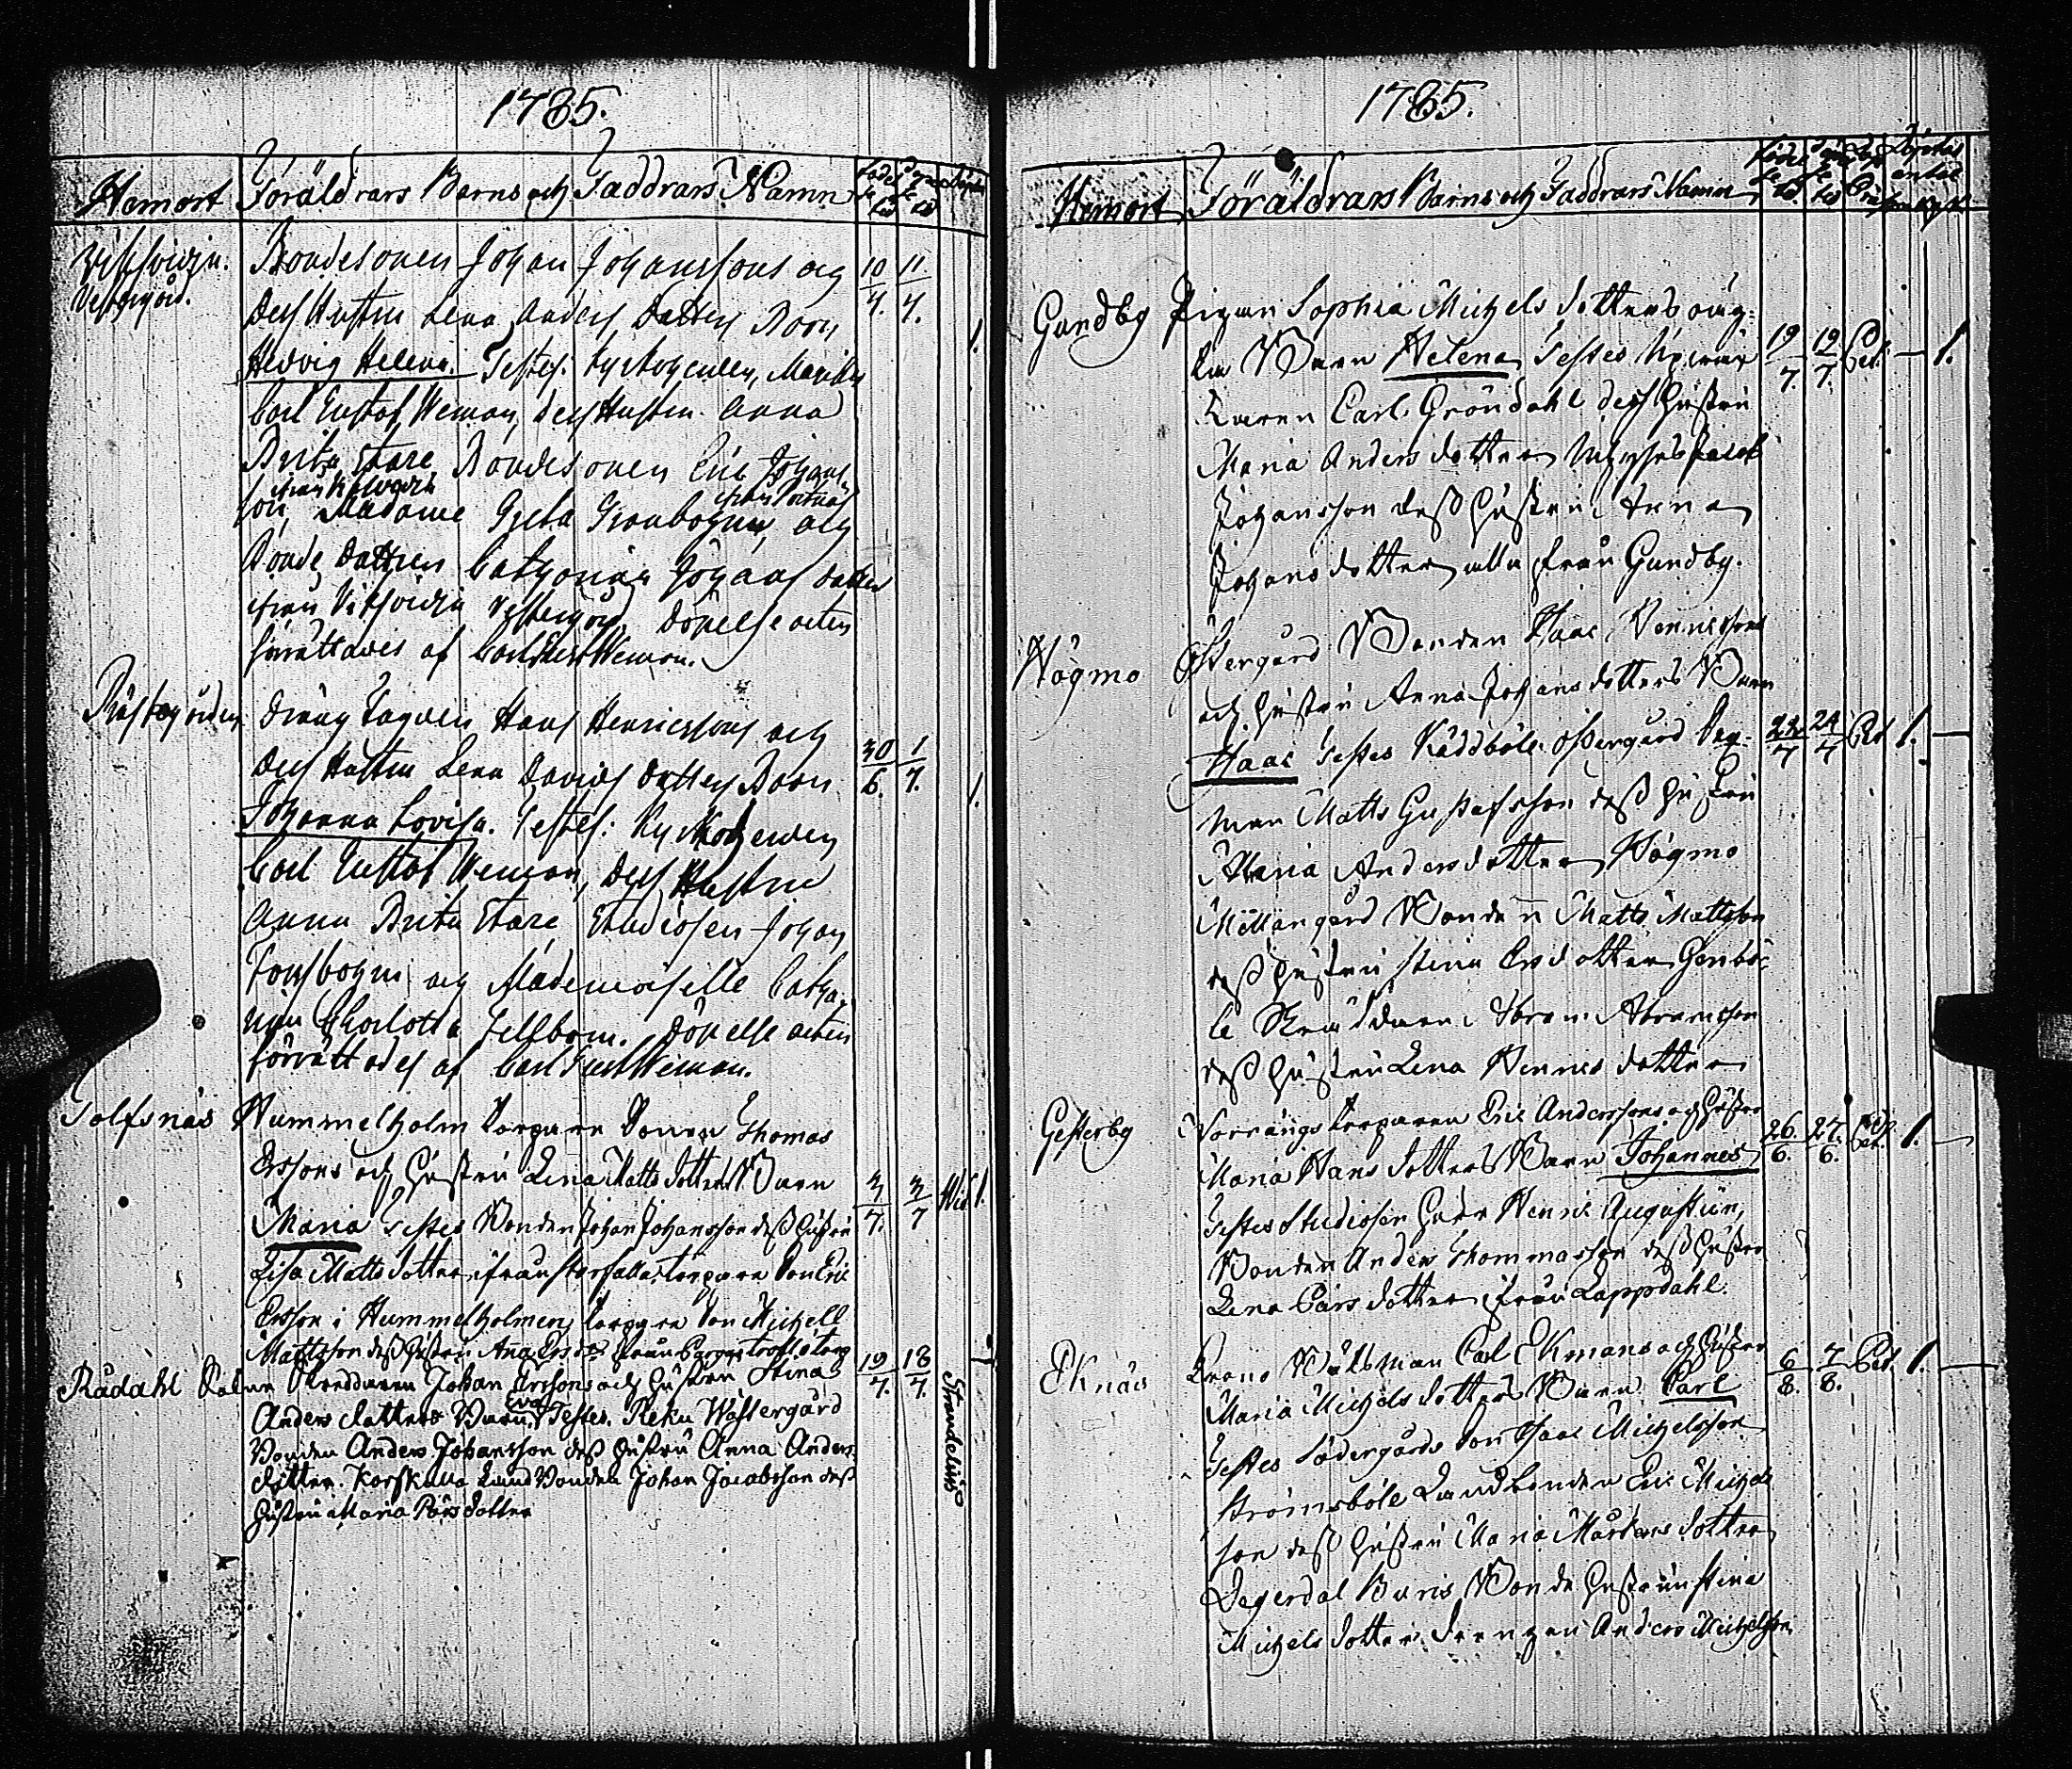 1785.
Hemort Föräldrars Barns och Faddrars Namn
Bondesonen Johan Johanssons och 10/4. 11/4.
Dess Hustru Lena Anders Dotters Barn
Hedvig Helena. Testes: Kyrkoherden, Mariæ
Carl Gustaf Weman, dess Hustru Anna
Brita Stare Bondesonen Eric Johans
son, Madame Greta
Bonde Dottren Catharina Johans dotter
ifrån Vestergård, Döpelse acten
förrättades af Carl Gust Weman.
Prästegården Dräng Hans Henricssons och
Dess Hustru Lena Davids Dotters Barn 30/6. 1/7. 1.
Johanna Lovisa. Testes: Kyrkoherden
Carl Gustaf Weman, Dess Hustru
Anna Brita Stare Studiosen Johan
och Mademoiselle Catha-
rina Charlotta Fellbom. Döpelse acten
förrättades af Carl Gust Weman.
Tolfsnäs Hummelholm Torpare Sonen Thomas
Erssons och Hustru Lena Matts dotters Barn 3/7. 3/7 Wid. 1.
Maria Testes Bonden Johan Johansson dess Hustru
Lisa Matts dotter ifrån Torpare Son Eric
Ersson i Hummelholmen Torpare Son Michell
Mattsson dess Hustru Ana Ers dr ifrån
Rådahl Skreddaren Johan Erssons och Hustru Stina 19/7. 18/7.
Anders dotters Barn Eva Testes. Reku Wästergård
Bonden Anders Johansson dess Hustru Anna Anders
dotter. Korskulla Land Bonden Johan Jacobsson dess
Hustru Maria Pärs dotter
Strandelius
1785.
Hemort Föräldrars Barns och Faddrars Namn
Gundby Pigan Sophia Michels dotters oäg-
ta Barn Helena Testes 19/7. 19/7. Ped. — 1.
Karen Carl Gröndahl dess Hustru
Maria Anders dotter Jacob
Johansson dess Hustru Anna
Johans dotter alla från Gundby.
Högmo Östergård Bonden Isaac Henricssons
och Hustru Anna Johans dotters Barn
Isaac Testes Käddböle Östergård 24/7 Ped 1. —
man Matts Gustafsson dess Hustru
Maria Anders dotter Högmo
Mellangård Bonden Matts Mattsson
dess Hustru Stina Ers dotter Genbö-
le Skräddaren Abram Abramsson
dess Hustru Lena Hennes dotter
Gesterby Norrängs Torparen Eric Anderssons och Hustru 26/6. 27/6. Ped. 1. —
Maria Hans dotters Barn Johannes
Testes Studiosen Herr Henric Augustin,
Bonden Anders Thommasson dess Hustru
Lena Pärs dotter ifrån Lappdahl.
Eknäs Krono Båtsman Carl Ekmans och Hustru 6/8. 7/8. Ped. 1. —
Maria Michels dotters Barn Carl
Testes Södergårds Son Isaac Michelsson
Strömsböle Landbonden Eric Michels
son dess Hustru Maria Mårtens dotter
Degerdal Buris Bonde Hustrun Stina
Michels dotter Drengen Anders Michelsson